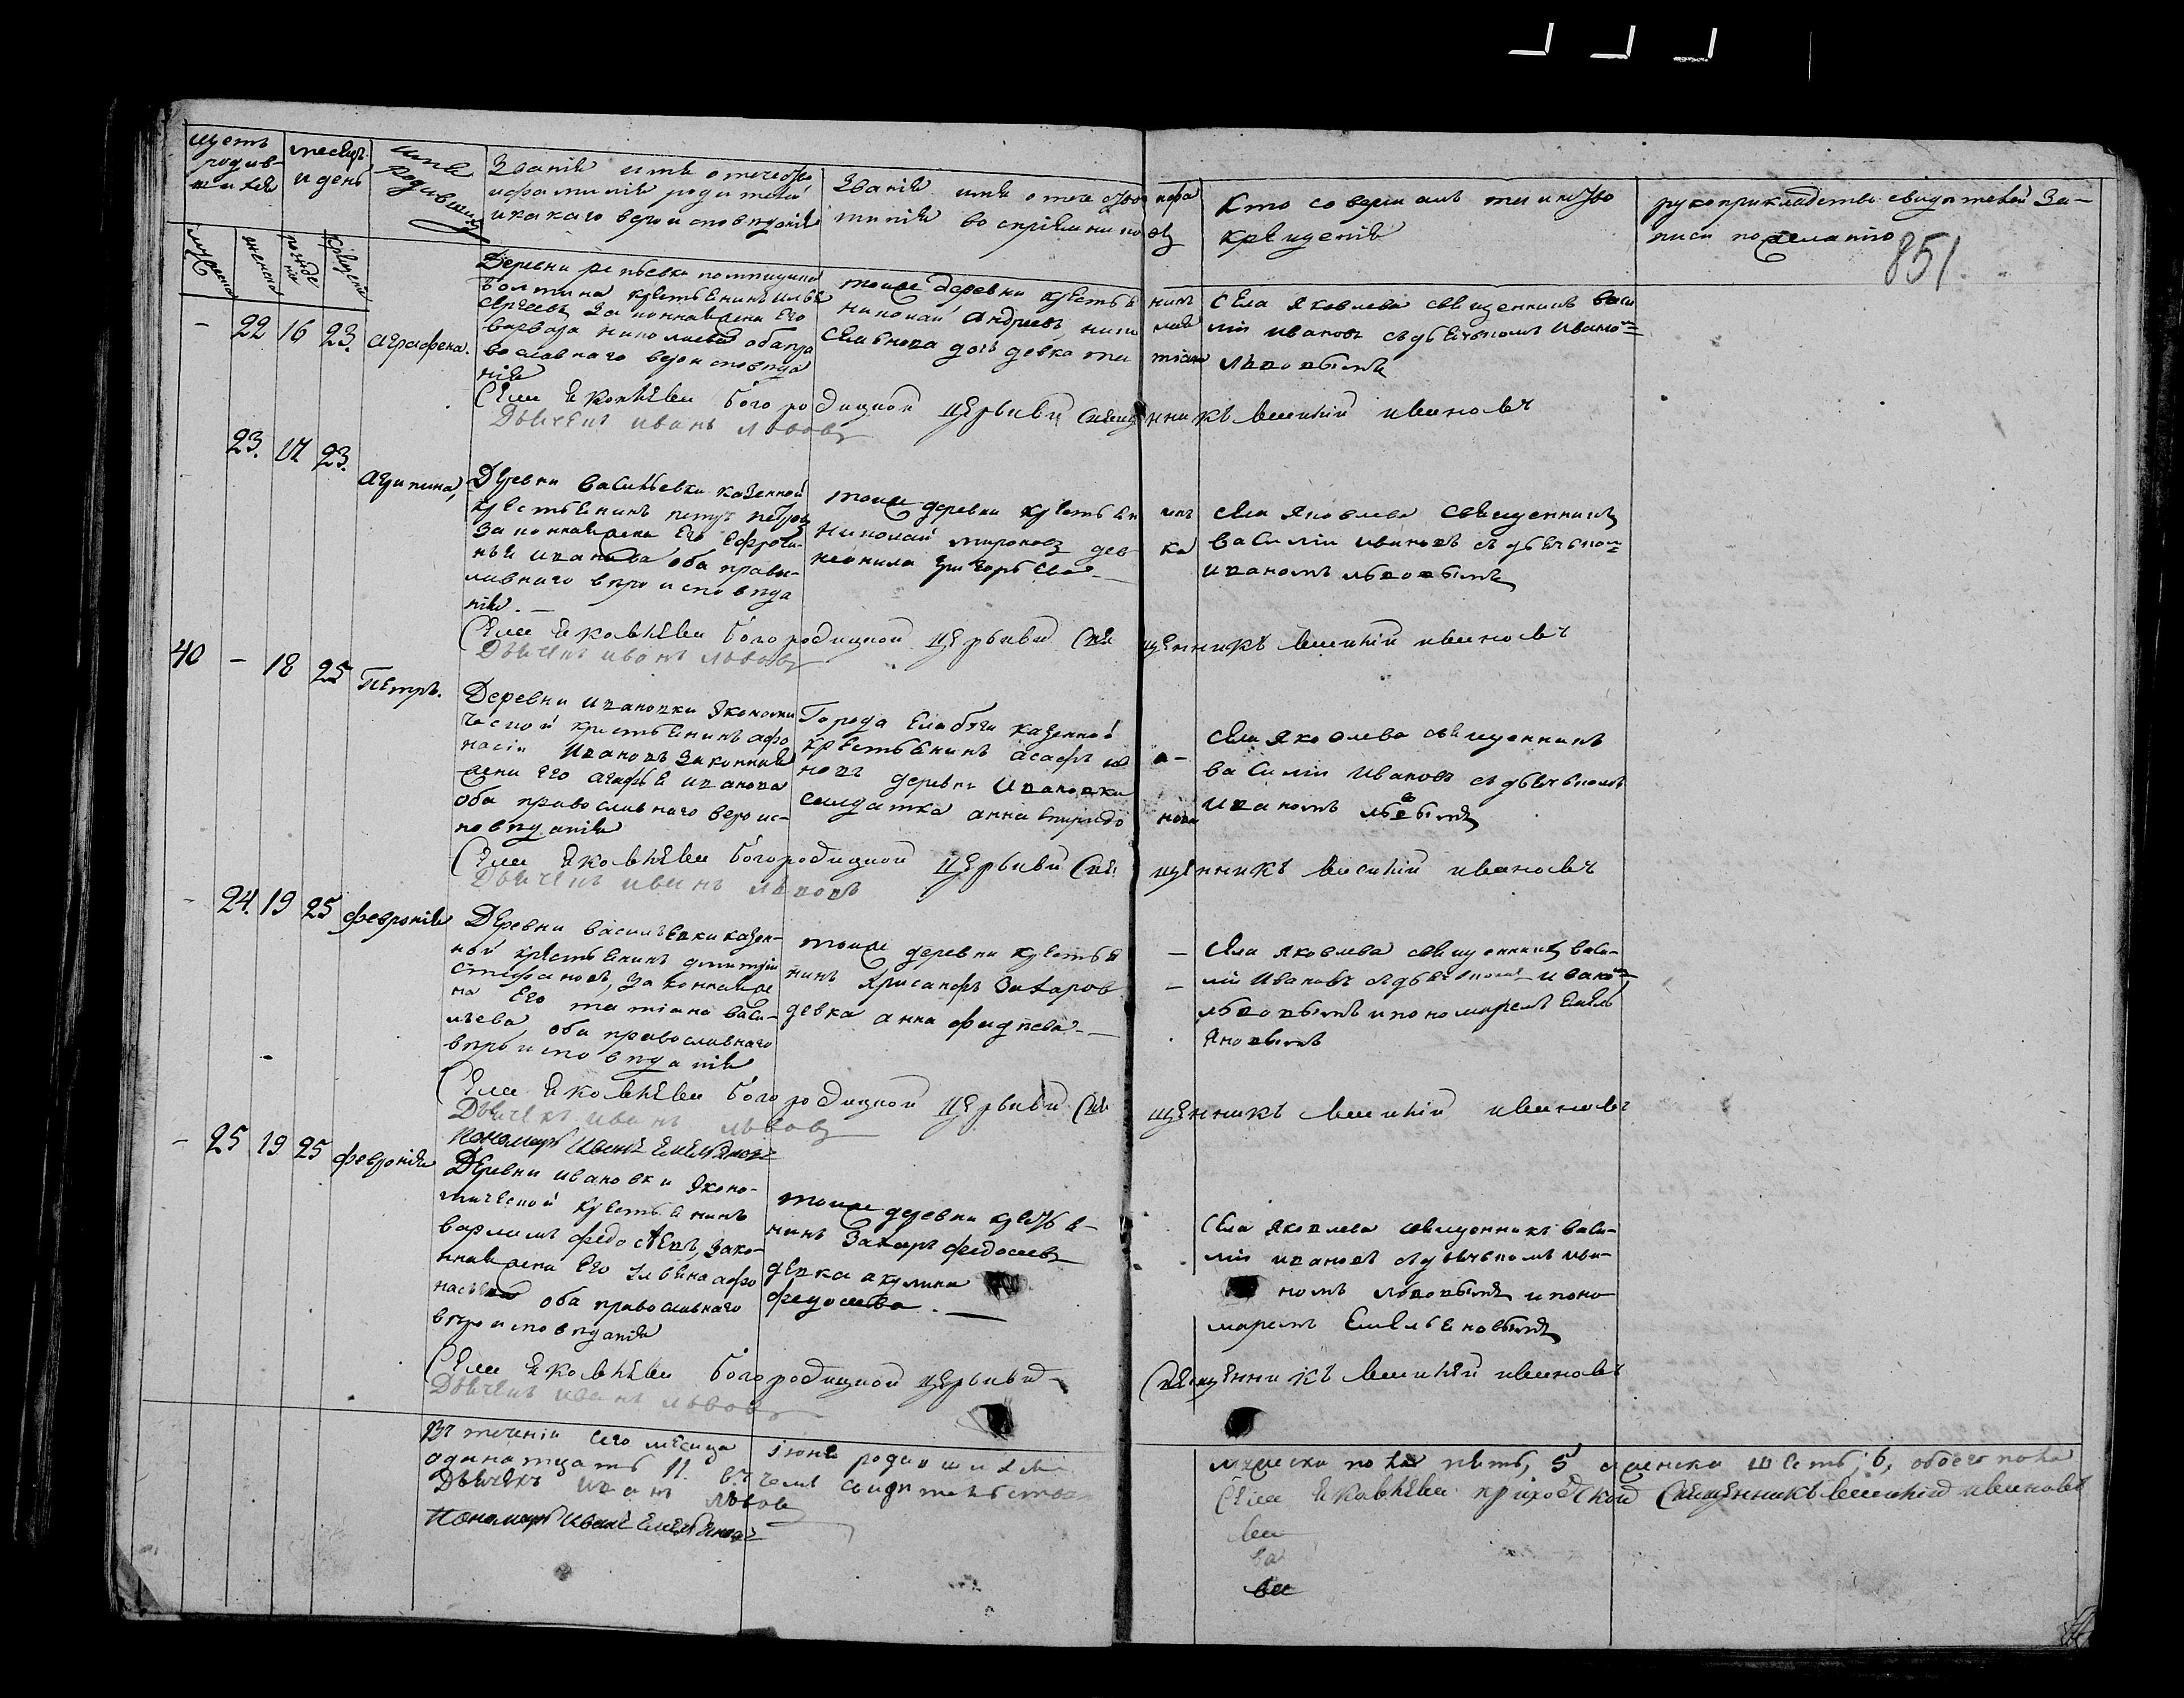 щетъ родив-шихся
мужеска
женска
месяцъ и день
рожденія
крещенія
имя родившихъ
Званіе имя отечество
и фамилія родителей
и какаго вероисповеданія
Званіе имя отечество и фа
милія воспріемниковъ
Кто совершалъ таинство
крещенія
рукоприкладство свидетелей за-
писи по желанію
851
- 22 16 23. Аграфена.
Деревни репьевки помещицы
крестьянинъ
Сергеевъ законная жена его
варвара николаева оба пра
вославнаго вероисповеда
нія
тоиже деревни крестья нинъ
николай Андреевъ
дочь девка та тіана
Села Яковлева священникъ васи
лій ивановъ съ дьячькомъ Ивано=
львовымъ
Села Яковлева богородицкой церькви священникъ василий ивановъ
Дьячекъ иванъ львовъ
23. 17 23. Агрипина,
Деревни васильевки казенной
крестьянинъ петръ петровъ
законная жена его Ефроси-
нья иванова оба право-
славнаго вероисповеда
нія. -
тоиже деревни крестьян инъ
николай мироновъ дев ка
неонила григорьева -
Села Яковлева священникъ
василіи ивановъ съ дьячьком=
Иваномъ львовымъ
Села Яковлева богородицкой церькви священникъ василий ивановъ
Дьячекъ иванъ львовъ
40 - 18 25 Петръ.
Деревни ивановки Экономи
ческой крестьянинъ афо
насіи Ивановъ законная
жена его агафья иванова
оба православнаго вероис-
поведанія
Города Елабуги казенной
крестьянинъ асафъ ива-
новъ деревни Ивановки
салдатка анна спиридо нова
Села Яковлева священникъ
василіи Ивановъ съ дьячькомъ
Иваномъ львовымъ
Села Яковлева богородицкой церькви священникъ василий ивановъ
Дьячекъ иванъ львовъ
- 24. 19 25 Февронія
Деревни васильевки казен-
ной крестьянинъ дмитріи
Стефановъ, законная же
на его татіана васи-
льева, оба православнаго
вероисповеданія
тоиже деревни крестья -
нинъ Хрисанфъ Захаров -
девка анна фадеева -
Села Яковлева священникъ васи-
лій Ивановъ съ дьячькомъ ивано=
львовымъ и пономаремъ Емель
яновымъ
Села Яковлева богородицкой церькви священникъ василий ивановъ
Дьячекъ иванъ львовъ
Пономарь Иванъ Емельяновъ
- 25 19 25 Февронія
Деревни ивановки Эконо-
мической крестьянинъ
варламъ федосеевъ, зако-
нная жена его Ульяна афо
насьева оба православнаго
вероисповеданія
тоиже деревни крестья-
нинъ Захаръ федосеевъ
девка акулина
федосеева. -
Села Яковлева священникъ васи-
лій ивановъ съ дьячькомъ ива-
номъ львовымъ и поно
маремъ Емельяновымъ
Села Яковлева богородицкой церькви священникъ василий ивановъ
Дьячекъ иванъ львовъ
Въ теченіи сего месяца іюня родившихся мужеска пола пять, 5 женска шесть, 6, обоего пола
одинатцать 11. въ чемъ свидетельствую Села Яковлева приходской священникъ василий ивановъ
Дьячекъ иванъ львовъ
Пономарь Иванъ Емельяновъ
ва
ва
ва